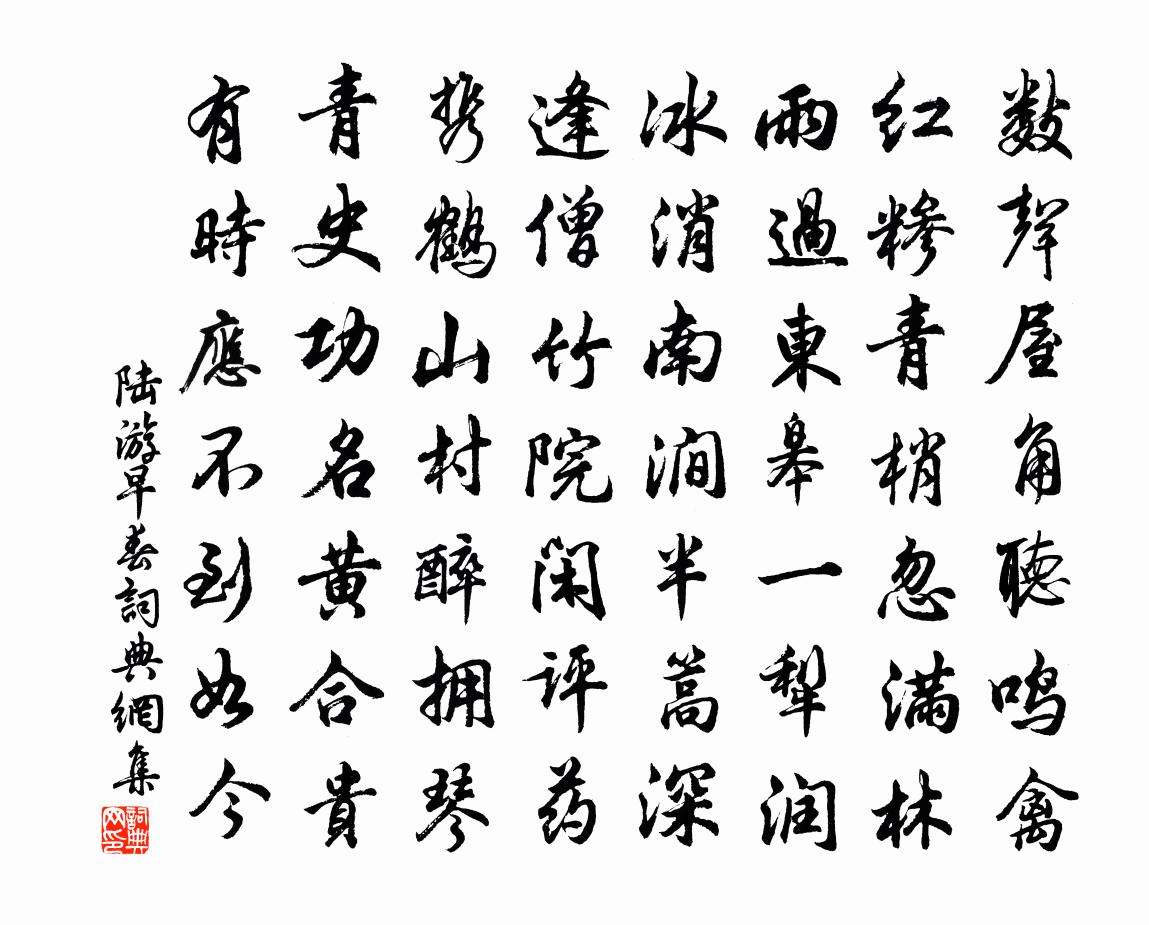 数聲屋角聽鳴禽
红糝青梢忽满林
雨過東皋一犁润
冰消南澗半篙深
逢僧竹院闲評药
携鶴山村醉拥琴
青史功名黄合貴
有時應不到如今
陆游早春詞典網集
詞典网印